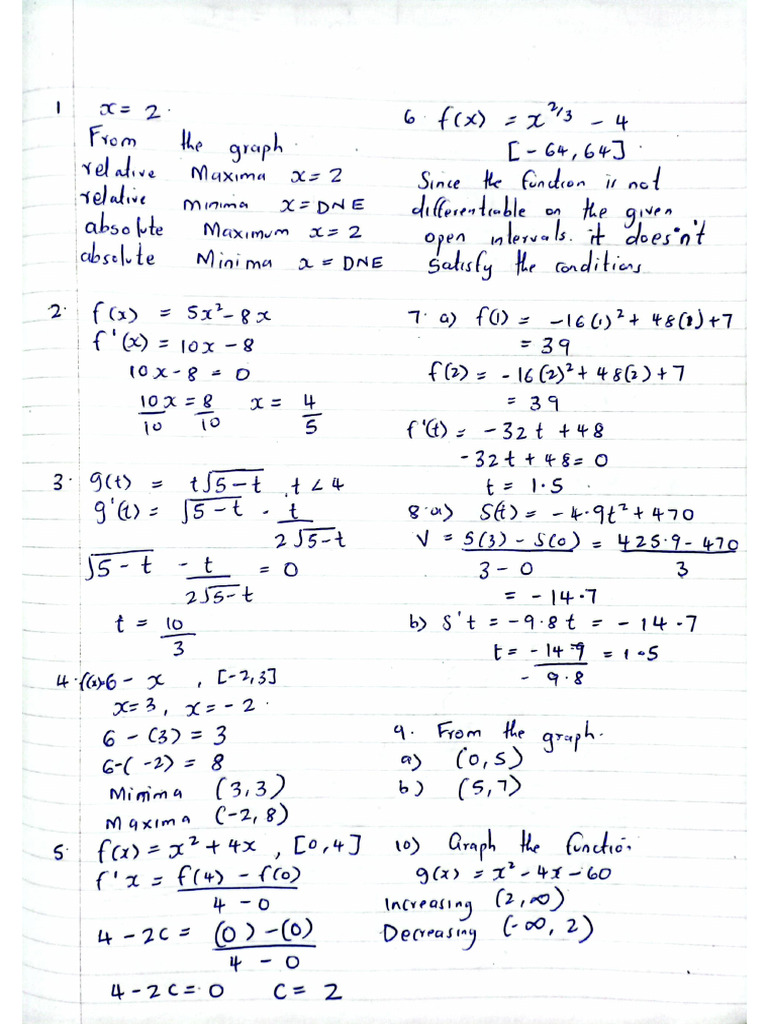 1 x = 2.
From the graph.
relative Maxima x = 2
relative minima x = DNE
absolute Maximum x = 2
absolute Minima x = DNE
2. f(x) = 5x² - 8x
f'(x) = 10x - 8
10x - 8 = 0
10x/10 = 8/10 x = 4/5
3. g(t) = t√5-t , t < 4
g'(t) = √5-t - t/2√5-t
√5-t - t/2√5-t = 0
t = 10/3
4. f(x)=6 - x , [-2,3]
x=3, x=-2.
6 - (3) = 3
6-(-2) = 8
Minima (3,3)
Maxima (-2,8)
5. f(x) = x² + 4x , [0,4]
f'x = f(4) - f(0)/4 - 0
4 - 2c = (0) - (0)/4 - 0
4 - 2c = 0 c = 2
6. f(x) = x^2/3 - 4
[-64, 64].
Since the function is not
differentiable on the given
open intervals. it doesn't
satisfy the conditions
7. a) f(1) = -16(1)² + 48(1)+7
= 39
f(2) = -16(2)² + 48(2) + 7
= 39
f'(t) = -32t + 48
-32t + 48 = 0
t = 1.5.
8. a) S(t) = -4.9t² + 470
V = S(3) - S(0)/3 - 0 = 425.9 - 470/3
= -14.7
b) S't = -9.8t = -14.7
t = -14.7/-9.8 = 1.5
9. From the graph.
a) (0,5)
b) (5,7)
10) Graph the function
g(x) = x² - 4x - 60
Increasing (2,∞)
Decreasing (-∞, 2)